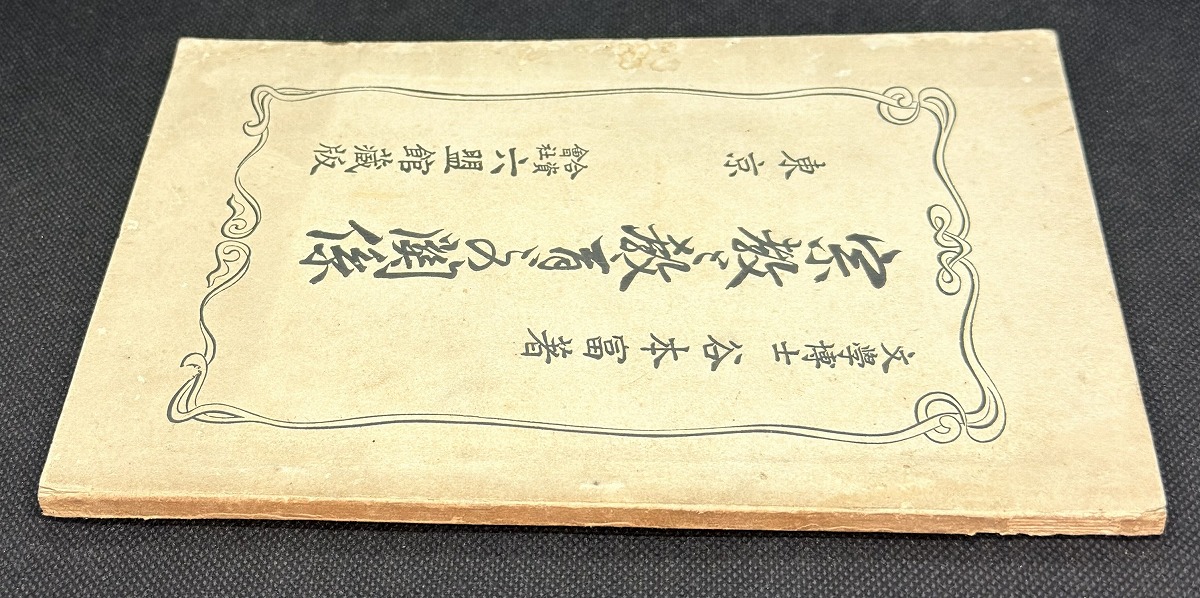 文學博士 谷本富著
宗教と教育との關係
東京 合資會社 六盟館藏版